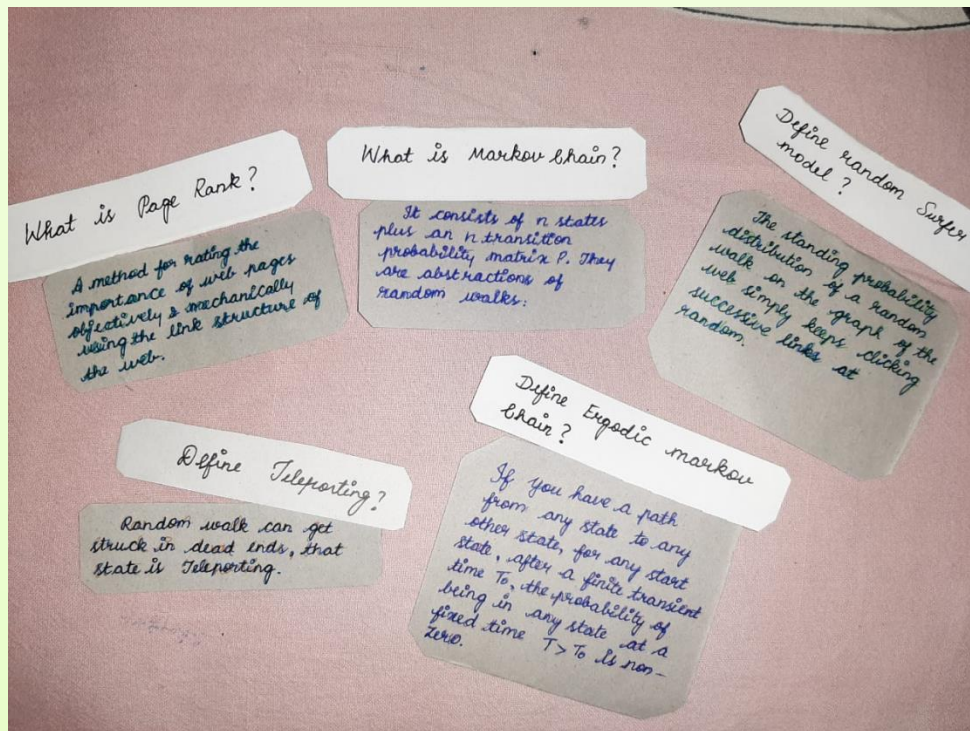 What is Page Rank?
A method for rating the
importance of web pages
objectively & mechanically
using the link structure of
the web.
What is Markov Chain?
It consists of n states
plus an n transition
probability matrix P. They
are abstractions of
random walks.
Define random Surfer
model?
The standing probability
distribution of a random
walk on the graph of the
web simply keeps clicking
successive links at
random.
Define Teleporting?
Random walk can get
struck in dead ends, that
state is Teleporting.
Define Ergodic markov
chain?
If you have a path
from any state to any
other state, for any start
state, after a finite transient
time T₀, the probability of
being in any state at a
fixed time T > T₀ is non-
zero.